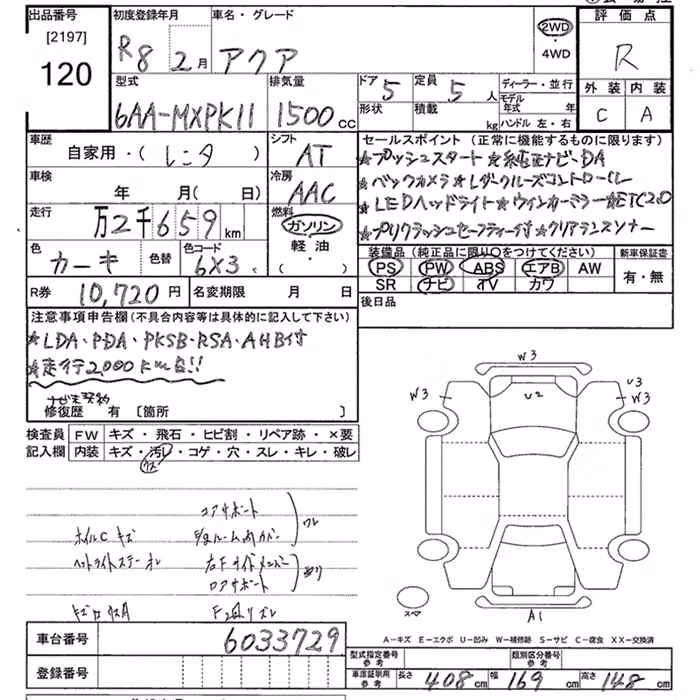 出品番号
[2197]
120
初度登録年月
R8 2月
車名・グレード
アクア
2WD
・
4WD
評価点
R
外装 内装
C A
型式
6AA-MXPK11
排気量
1500 cc
ドア 5
定員 5 人
形状
積載 kg
ディーラー・並行
モデル年式 年
ハンドル 左・右
車歴
自家用・( レンタ )
シフト
AT
車検
年 月( 日)
冷房
AAC
走行
万2千659km
燃料
ガソリン
軽油
( ・ )
色
カーキ
色替
色コード
6X3
セールスポイント (正常に機能するものに限ります)
★プッシュスタート ★純正ナビ・DA
★バックカメラ ★レーダークルーズコントロール
★LEDヘッドライト ★ウインカーミラー ★ETC2.0
★プリクラッシュセーフティー付 ★クリアランスソナー
装備品 (純正品に限り○をつけてください)
PS PW ABS エアB AW
SR ナビ TV カワ
新車保証書
有・無
R券 10,720円
名変期限 月 日
後日品
注意事項申告欄 (不具合内容等は具体的に記入して下さい)
★LDA・PDA・PKSB・RSA・AHB付
★走行2,000km台!!
修復歴 有 [箇所 ]
検査員記入欄
FW キズ・飛石・ヒビ割・リペア跡・×要
内装 キズ・汚レ・コゲ・穴・スレ・キレ・破レ
コアサポート
ホイルC キズ
ワレ
ヘッドライトステー
右Fサイドメンバー
ロアサポート
W3
W3
U2
U3
W3
A1
スペア
A－キズ E－エクボ U－凹み W－補修跡 S－サビ C－腐食 XX－交換済
車台番号 6033729
登録番号
型式指定番号 参考
類別区分番号 参考
車庫証明用 参考 長さ 408 cm 幅 169 cm 高さ 148 cm